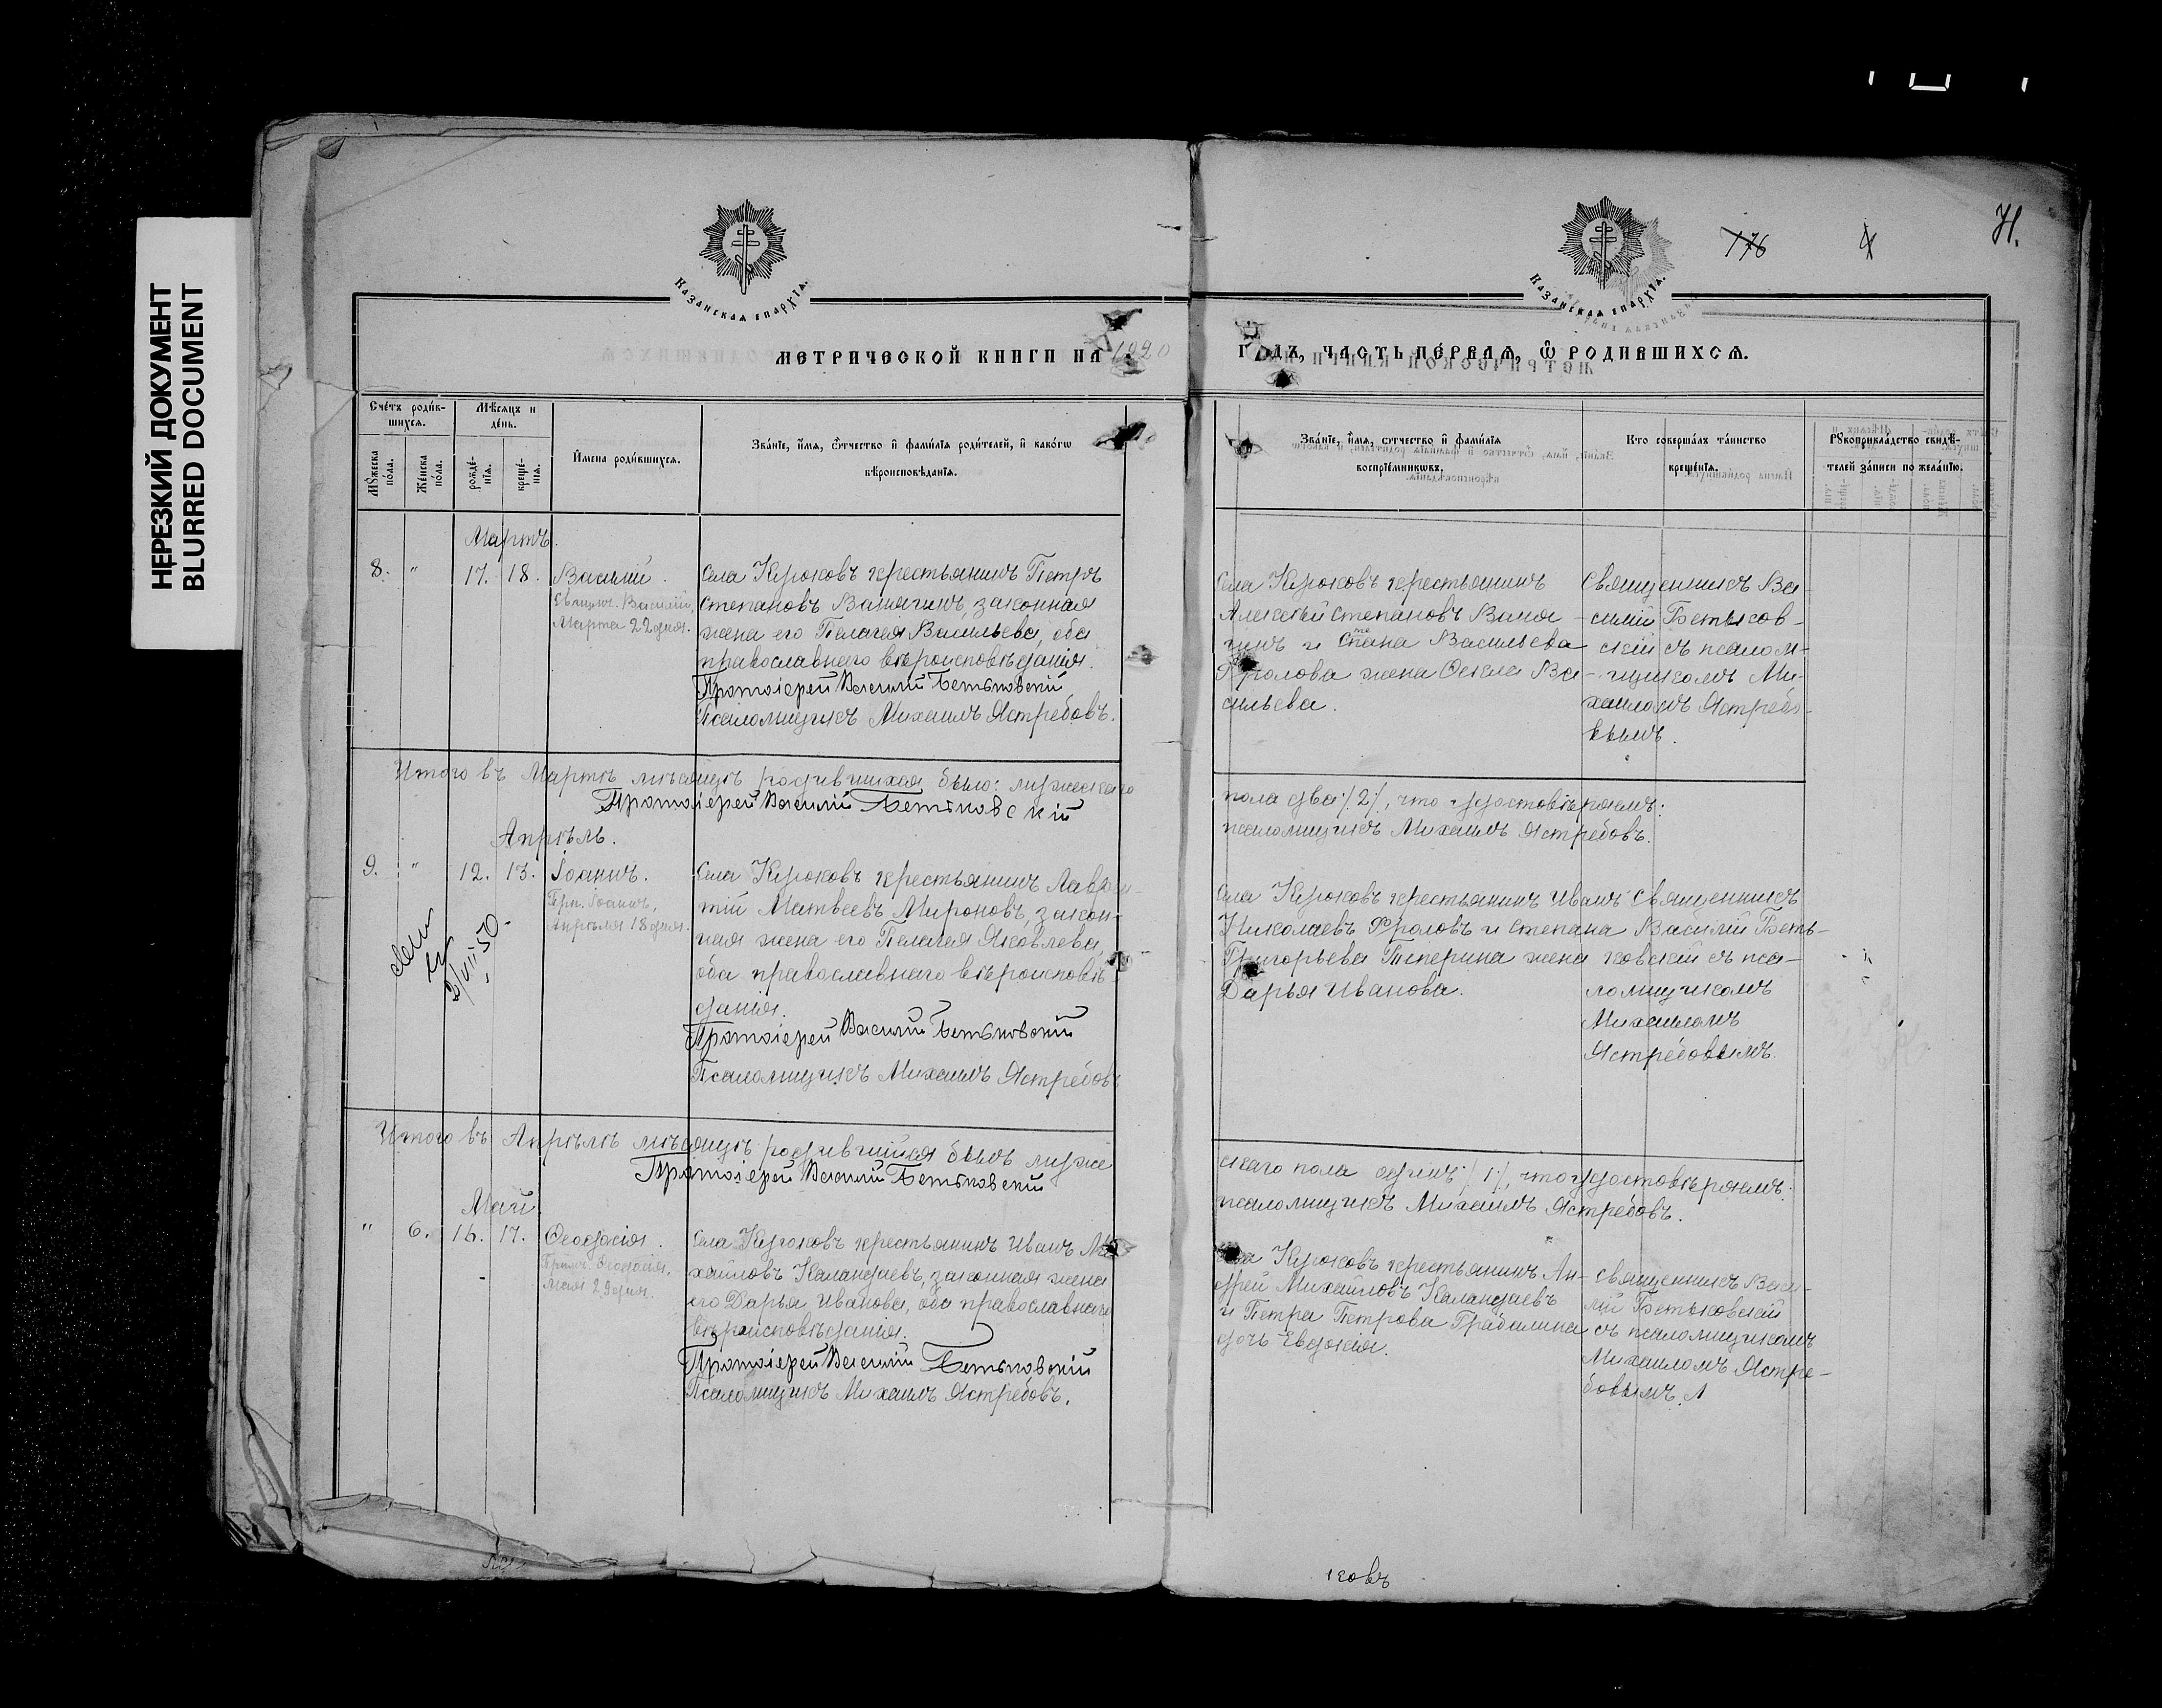 НЕРЕЗКИЙ ДОКУМЕНТ
BLURRED DOCUMENT
176
4
71.
Казанская епархїѧ.
Казанская епархїѧ.
МЕТРИЧЕСКОЙ КНИГИ НА 1920
ГОДЪ, ЧАСТЬ ПЕ́РВАЯ, Ѿ РОДИВШИХСѦ.
Сче́тъ роди́в-
шихсѧ.
Мѣ́сѧцъ и
де́нь.
Мꙋ́жеска
по́ла.
Же́нска
по́ла.
рожде́-
нїѧ.
креще́-
нїѧ.
И҆мена̀ роди́вшихсѧ.
Зва́нїе, и҆́мѧ, ѻ҆́тчество и҆ фами́лїѧ роди́телей, и҆ како́гѡ
вѣроисповѣ́данїѧ.
Зва́нїе, и҆́мѧ, ѻ҆́тчество и҆ фами́лїѧ
воспрїе́мниковъ.
Кто̀ соверша́лъ та́инство
креще́нїѧ.
Рꙋкоприкла́дство свидѣ́-
телей за́писи по жела́нїю.
Мартъ.
8. " 17. 18. Василій.
Свящм. Василій,
Марта 22 дня.
Села Крюковъ крестьянинъ Петръ
Степановъ Ванягинъ, законная
жена его Пелагея Васильева, оба
православнаго вѣроисповѣданія.
Протоіерей Василий Бетьковскій
Псаломщикъ Михаилъ Ястребовъ.
Села Крюковъ крестьянинъ
Алексѣй Степановъ Ваня-
гинъ и Степана Васильева
Фролова жена Ѳекла Ва-
сильева.
Священникъ Ва-
силій Бетьков-
скій съ псалом-
щикомъ Ми-
хаиломъ Ястребо-
вымъ.
Итого въ Мартѣ мѣсяцѣ родившихся было: мужескаго
Протоіерей Василий Бетьковскій
пола два /2/, что удостовѣряемъ:
псаломщикъ Михаилъ Ястребовъ.
Апрѣль.
9. " 12. 13. Іоаннъ.
Прп. Іоаннъ,
Апрѣля 18 дня.
Села Крюковъ крестьянинъ Лаврен-
тій Матвеевъ Мироновъ, закон-
ная жена его Пелагея Яковлева,
оба православнаго вѣроисповѣ-
данія.
Протоіерей Василий Бетьковскій
Псаломщикъ Михаилъ Ястребовъ
Села Крюковъ крестьянинъ Иванъ
Николаевъ Фроловъ и Степана
Григорьева Типерина жена
Дарья Иванова.
Священникъ
Василій Беть-
ковскій съ пса-
ломщикомъ
Михаиломъ
Ястребовымъ.
Итого въ Апрѣлѣ мѣсяцѣ родившійся былъ муже
Протоіерей Василий Бетьковскій
скаго пола одинъ /1/, что удостовѣряемъ:
псаломщикъ Михаилъ Ястребовъ.
Май
" 6. 16. 17. Ѳеодосія.
Прмч. Ѳеодосія,
Мая 29 дня.
Села Крюковъ крестьянинъ Иванъ Ми-
хайловъ Каландаевъ, законная жена
его Дарья Иванова, оба православнаго
вѣроисповѣданія.
Протоіерей Василий Бетьковскій
Псаломщикъ Михаилъ Ястребовъ.
Села Крюковъ крестьянинъ Ан-
дрей Михайловъ Каландаевъ
и Петра Петрова Грабалина
дочь Евдокія.
Священникъ Васи-
лій Бетьковскій
съ псаломщикомъ
Михаиломъ Ястре-
бовымъ.
ковъ